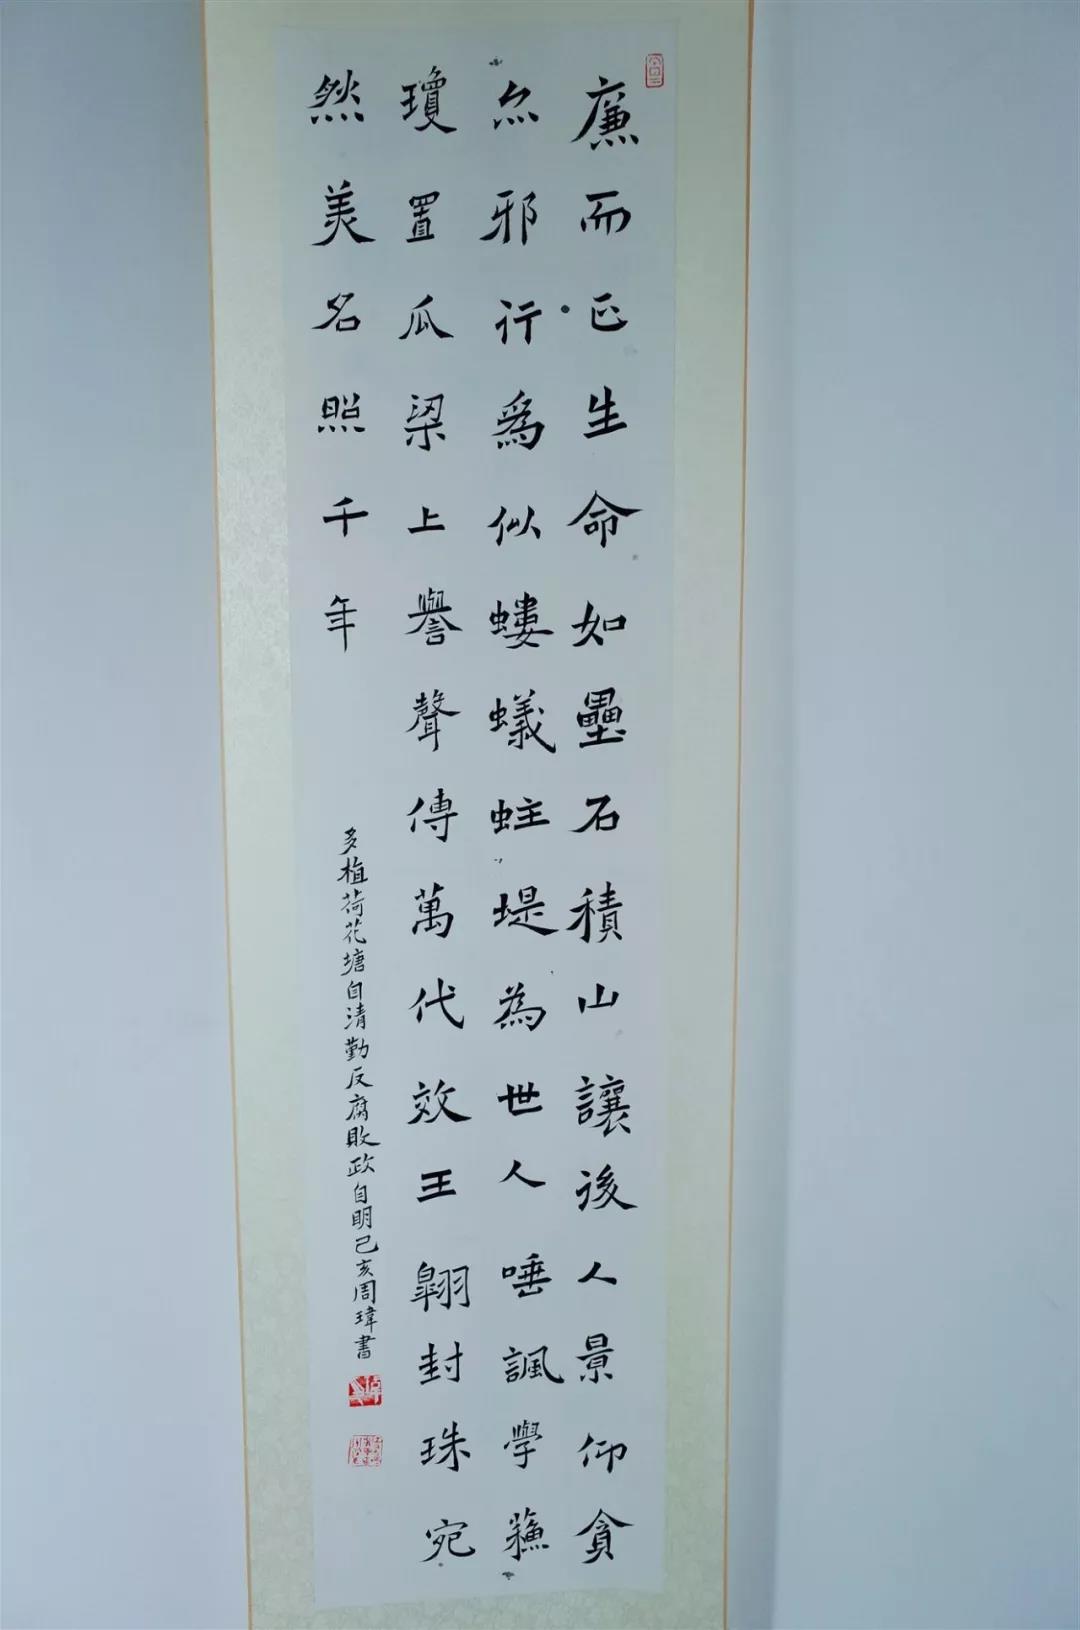 廉而正生命如壘石積山讓後人景仰貪
尒邪行爲似螻蟻蛀堤為世人唾諷學蘓
瓊置瓜梁上譽聲傳萬代效王翺封珠宛
然美名照千年
多植荷花塘自清勤反腐敗政自明己亥周瑋書